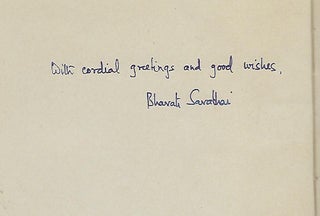 With cordial greetings and good wishes,
Bharati Sarabhai